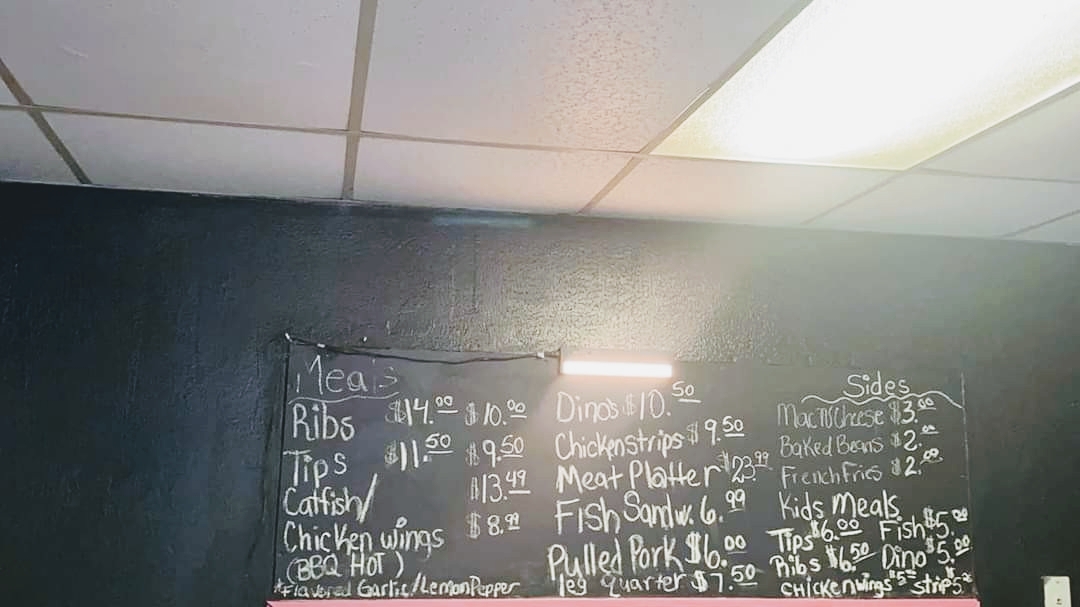 Meals
Ribs $14.00 $10.00
Tips $11.50 $9.50
Catfish/ $13.49
Chicken wings $8.99
(BBQ HOT)
*Flavored Garlic/Lemon Pepper
Dino's $10.50
Chicken strips $9.50
Meat Platter $23.99
Fish Sandw. 6.99
Pulled Pork $6.00
leg quarter $7.50
Sides
Mac N Cheese $3.00
Baked Beans $2.00
French Fries $2.00
Kids Meals
Tips $6.00 Fish $5.00
Ribs $6.50 Dino $5.00
chicken wings strips